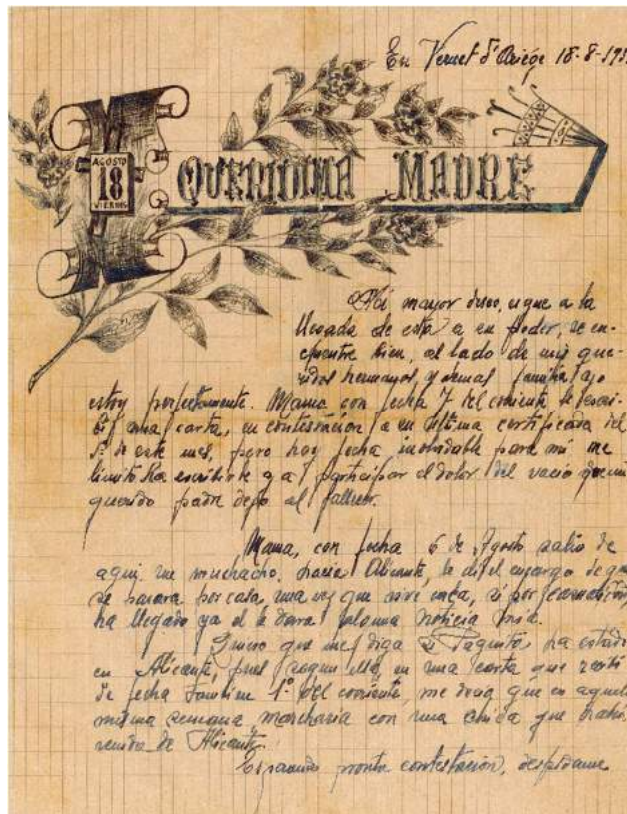 En Vernet d'Ariége 18-8-193
AGOSTO
18
VIERNES
QUERIDIMA MADRE
Mi mayor deseo, es que a la
llegada de esta a su poder, se en-
cuentre bien, al lado de mis que-
ridos hermanos, y demas familia, yo
estoy perfectamente. Mama con fecha 7 del corriente le escri-
bí una carta, en contestación a su última certificada del
1º de este mes, pero hoy fecha inolvidable para mí me
limito ha escribirle y a participar el dolor del vacio que mi
querido padre dejo al fallecer.
Mama, con fecha 6 de Agosto salio de
aqui un muchacho, hacia Alicante, le di el encargo de que
se pasara por casa, una vez que vive cerca, si por
ha llegado ya el le dara alguna noticia mia.
Quiero que me diga si Paquito ha estado
en Alicante, pues segun ella, en una carta que recibí
de fecha tambien 1º del corriente, me decia que en aquella
misma semana marcharia con una chica que habia
venido de Alicante.
Esperando pronta contestación, despidame